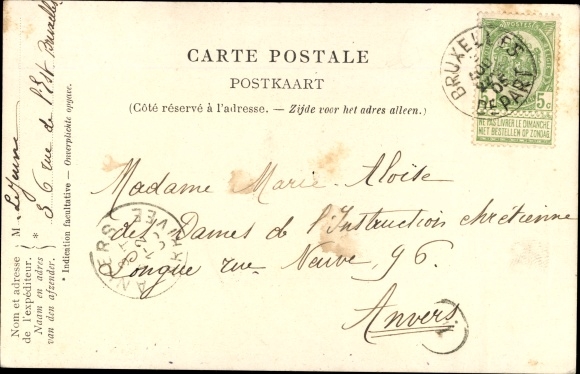 CARTE POSTALE
POSTKAART
(Côté réservé à l'adresse. — Zijde voor het adres alleen.)
BRUXELLES
DEPART
5c
NE PAS LIVRER LE DIMANCHE
NIET BESTELLEN OP ZONDAG
Madame Marie-Aloïse
des Dames de l'Instruction chrétienne
Longue rue Neuve, 96.
Anvers
ANVERS
Nom et adresse de l'expéditeur.
Naam en adres van den afzender.
M Lejeune
* 36 rue de l'Est Bruxelles
* Indication facultative — Onverplichte opgave.